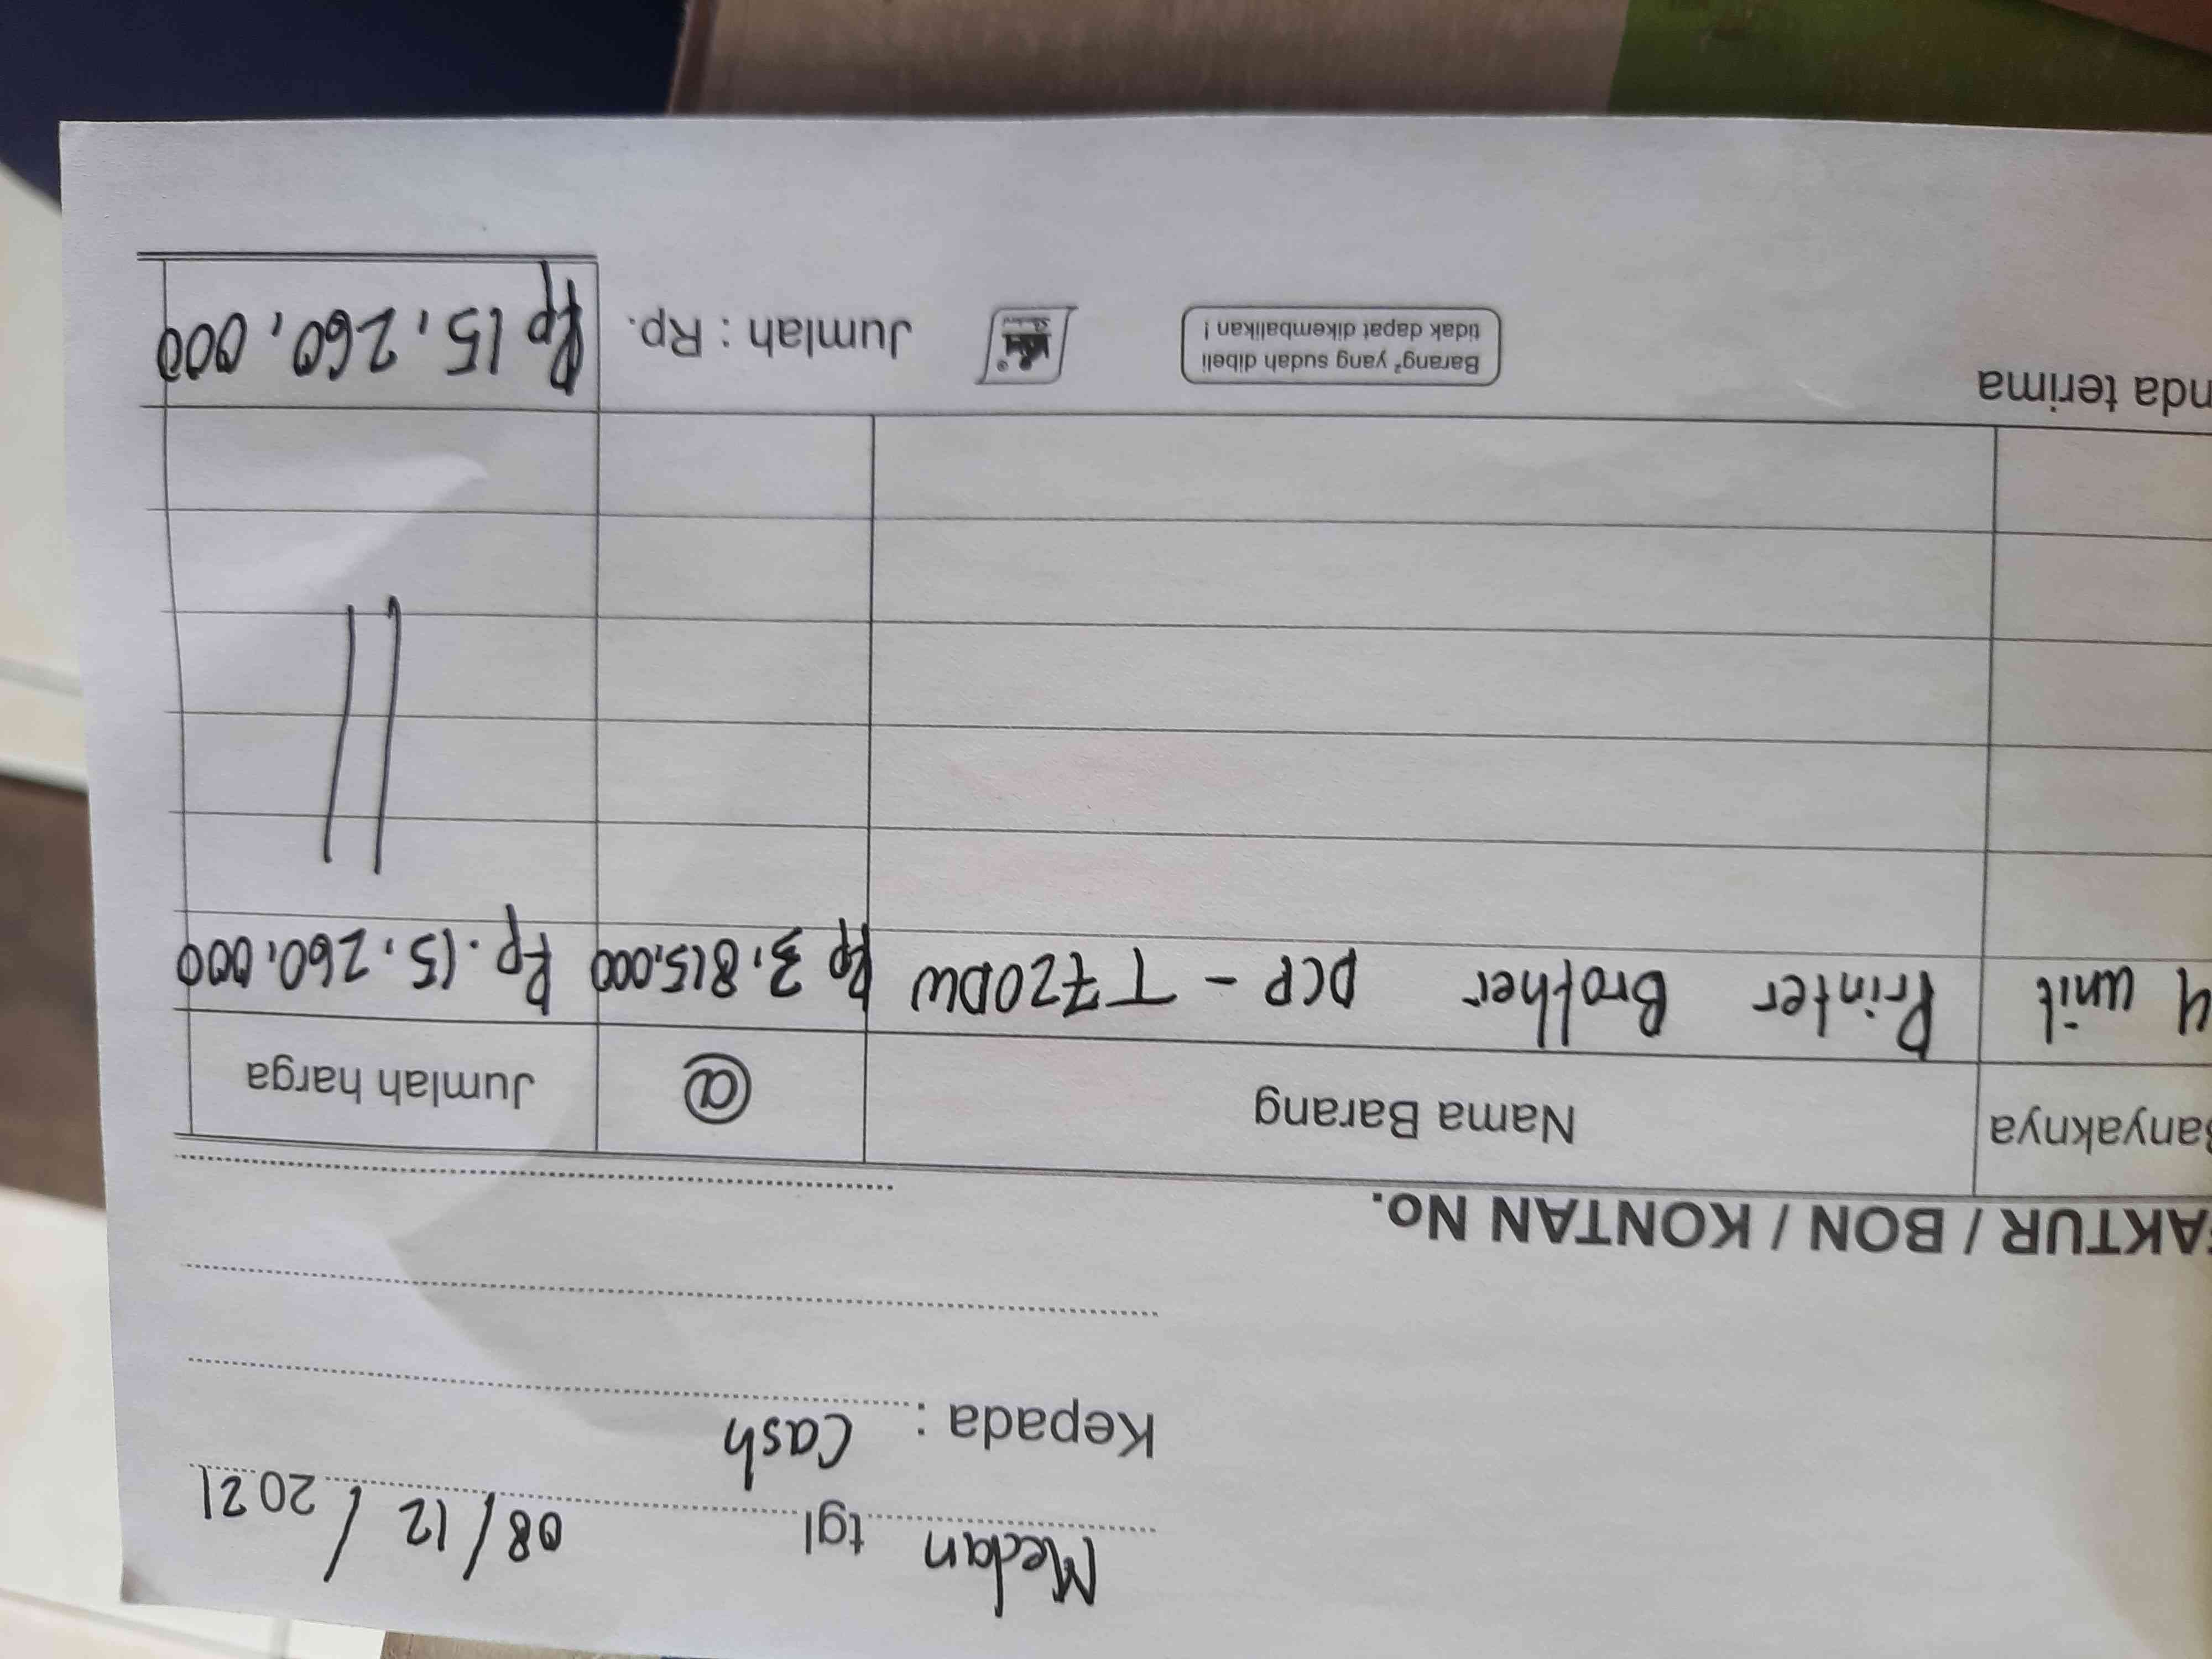 Medan tgl 08/12/2021
Kepada : Cash
FAKTUR / BON / KONTAN No.
Banyaknya Nama Barang @ Jumlah harga
4 unit Printer Brother DCP - T720DW Rp 3,815.000 Rp. 15,260,000
nda terima
Barang² yang sudah dibeli
tidak dapat dikembalikan !
Jumlah : Rp. Rp 15,260,000